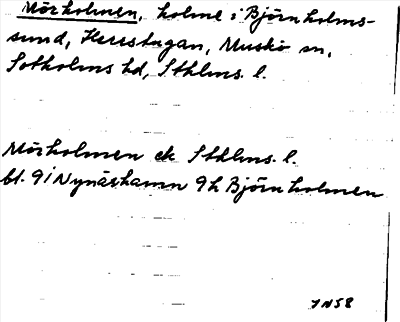 Mörholmen, holme i Björnholms-
sund, Herrstugan, Muskö sn,
Sotholms hd, Sthlms. l.
Mörholmen ek Sthlms. l.
bl. 91 Nynäshamn 9h Björnholmen
JN58